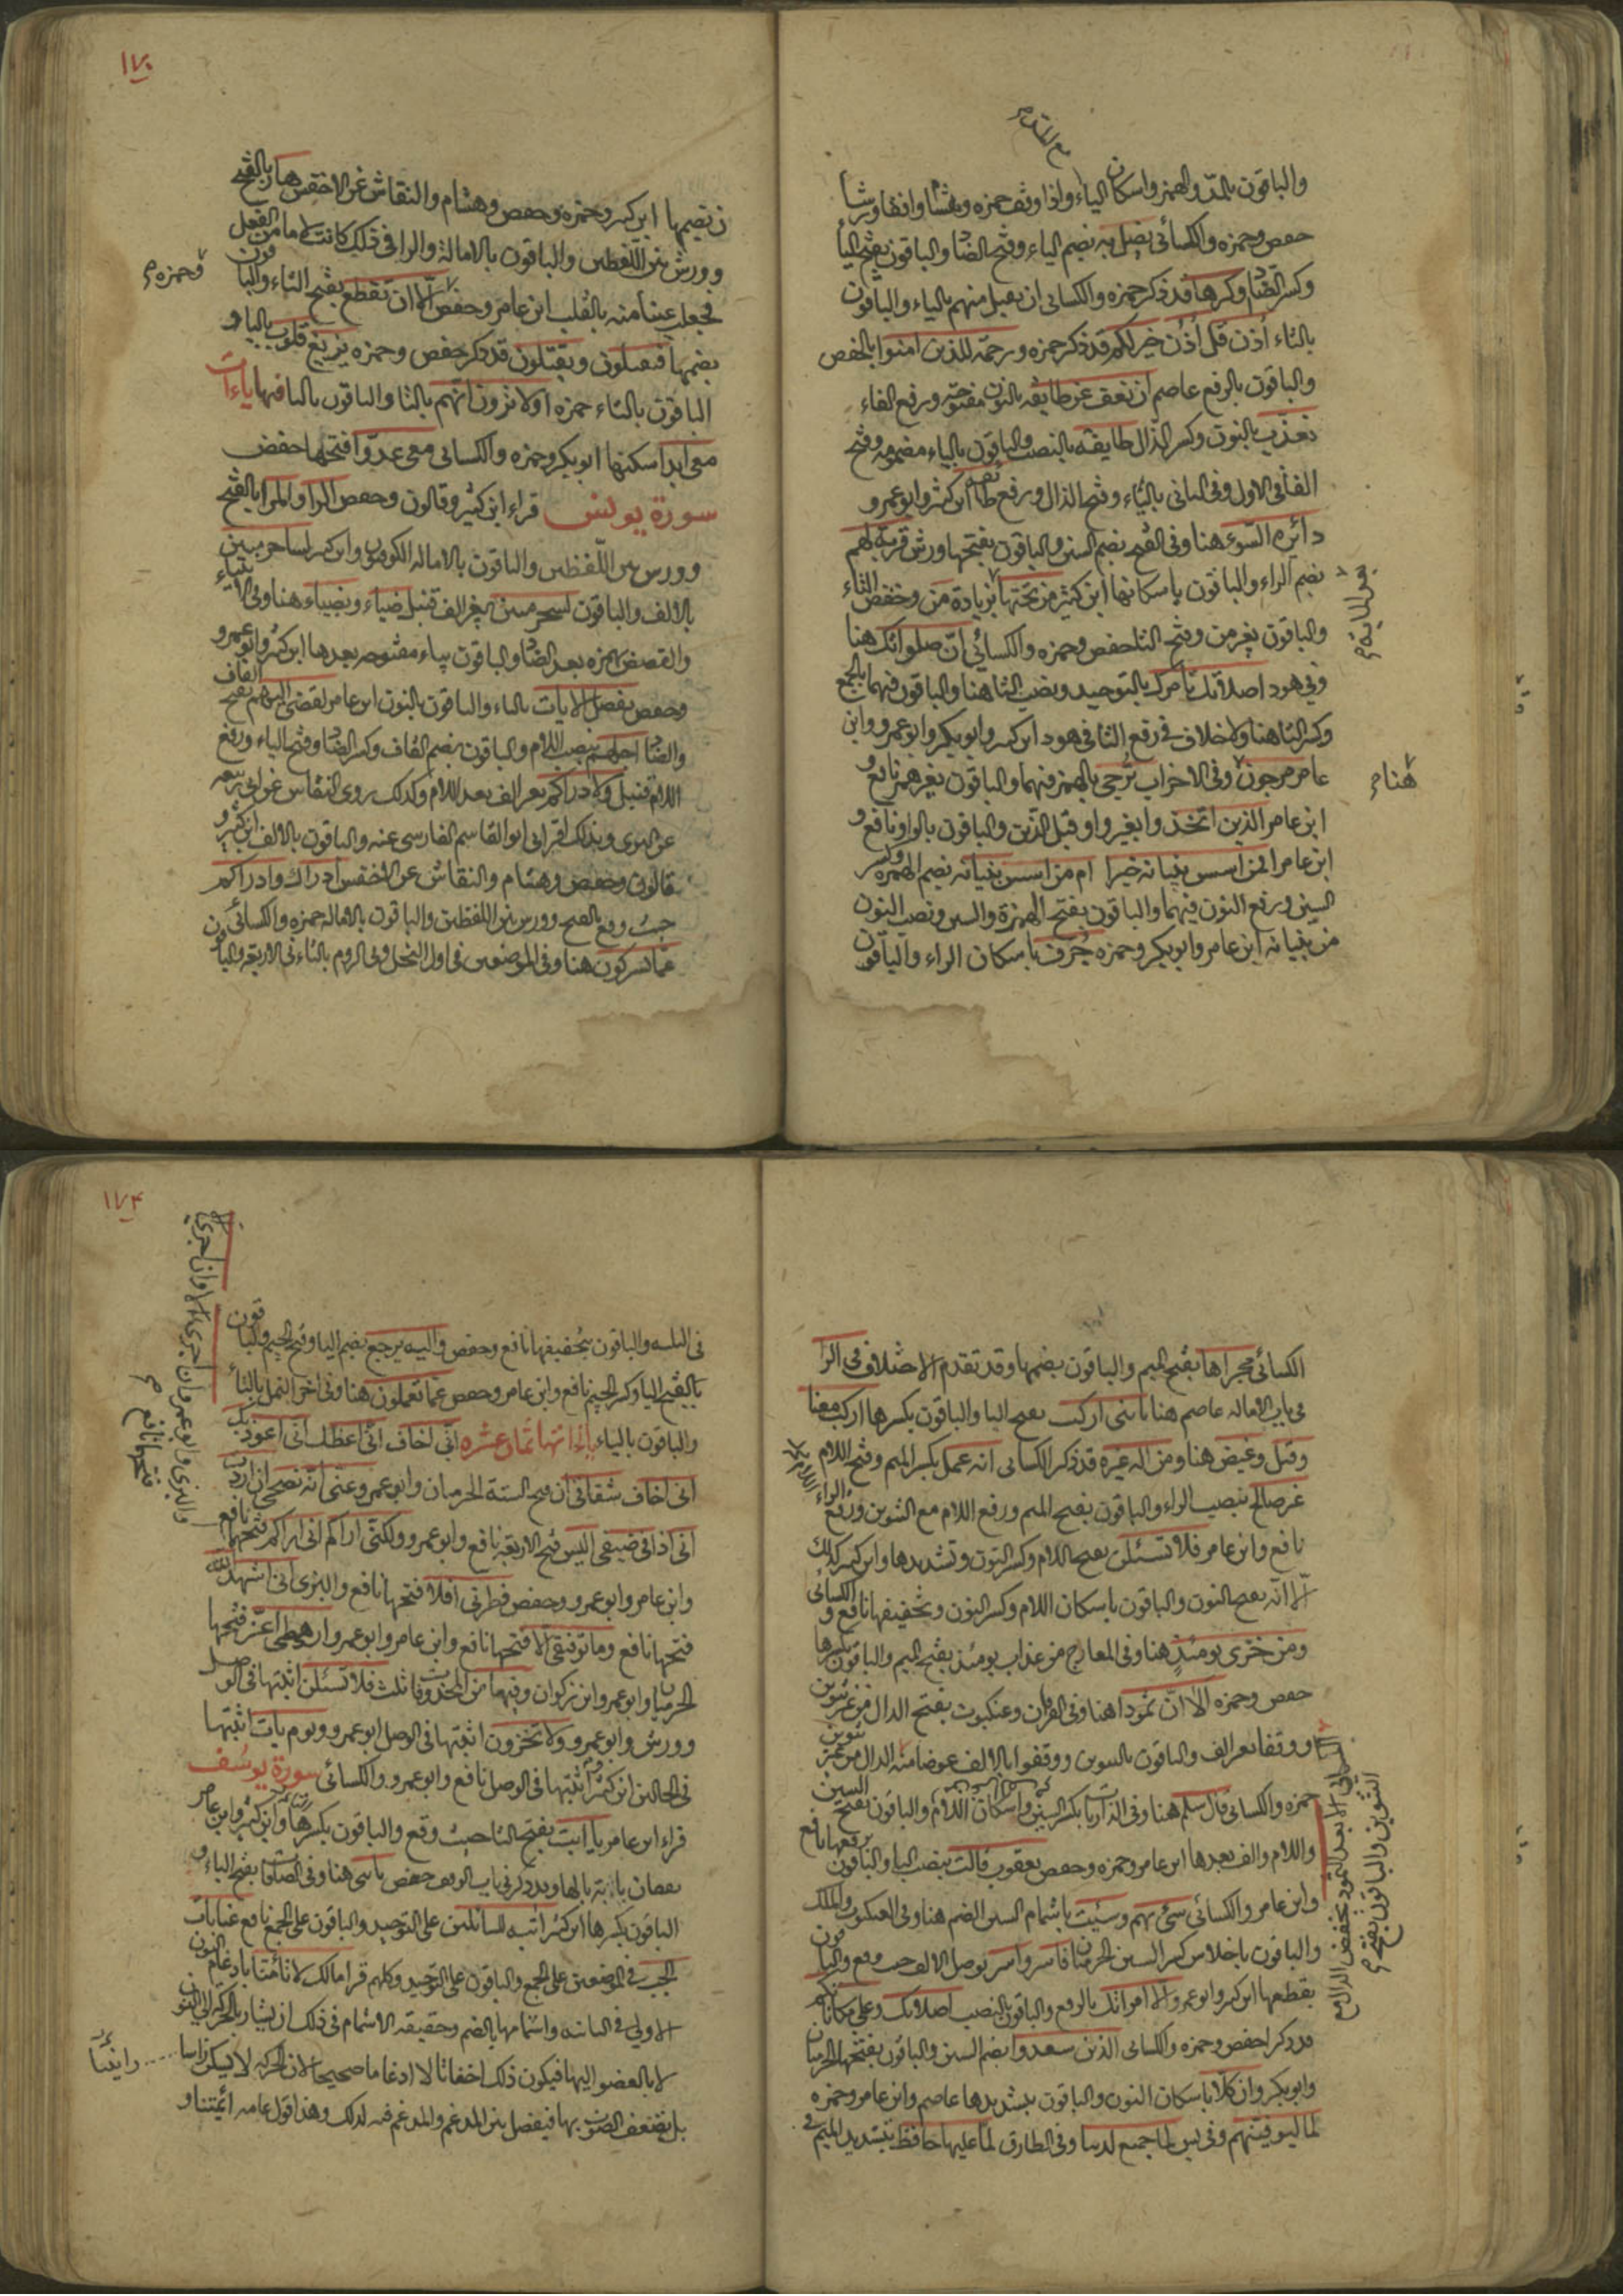 والباقون بالمد والهمز واسكان الياء واذا وقف حمزه وهشام وافقا ورشا
حفص وحمزه والكسائى يضل به بضم الياء وفتح الضاد والباقون بفتح اليا
وكسر الضاد وكرها قد ذكر حمزه والكسائى ان يقبل منهم بالياء والباقون
بالتاء اذن قل اذن خير لكم قد ذكر حمزه ورحمة للذين امنوا بالخفض
والباقون بالرفع عاصم ان نعف عن طايفه بالنون مفتوحه ورفع الفاء
نعذب بالنون وكسر الذال طايفه بالنصب والباقون بالياء مضمومه وفتح
الفا فى الاول وفى الثانى بالتاء وفتح الذال ورفع طائفه ابن كثير وابو عمرو
دائره السوء هنا وفى الفتح بضم السين والباقون بفتحها ورش قربة لهم
بضم الراء والباقون باسكانها ابن كثير من تحتها بزيادة من وخفض التاء
والباقون بغير من وفتح التا حفص وحمزه والكسائى ان صلواتك هنا
وفى هود اصلاتك تامرك بالتوحيد ونصب التا هنا والباقون فيهما بالجمع
وكسر التا هنا ولا خلاف فى رفع التا فى هود ابن كثير وابو بكر وابو عمرو وابن
عامر مرجون وفى الاحزاب ترجى بالهمز فيهما والباقون بغير همز نافع و
هنام
ابن عامر الذين اتخذوا بغير واو قبل الذين والباقون بالواو نافع و
ابن عامر افمن اسس بنيانه خير ام من اسس بنيانه بضم الهمزه وكسر
السين ورفع النون فيهما والباقون بفتح الهمزة والسين ونصب النون
من بنيانه ابن عامر وابو بكر وحمزه جرف باسكان الراء والباقون
١٧٠
بضمها ابن كثير وحمزه وحفص وهشام والنقاش عن الاخفش هار بالفتح
وورش بين اللفظين والباقون بالامالة والرا فى ذلك كانت لاما من الفعل
فجعلت عينا منه بالقلب ابن عامر وحفص الا ان تقطع بفتح التاء والباقون
وحمزه
بضمها فيقتلون ويقتلون قد ذكر حفص وحمزه يزيغ قلوب بالياء و
الباقون بالتاء حمزه اولا ترون انهم بالتا والباقون باليا فيها ياءات
معى ابدا سكنها ابو بكر وحمزه والكسائى معى عدوا فتحها حفص
سورة يونس قراء ابن كثير وقالون وحفص الرا والمرا بالفتح
وورش بين اللفظين والباقون بالاماله الكوفيون وابن كثير لساحر مبين
بالالف والباقون لسحر مبين بغير الف قنبل ضياء وبضياء هنا وفى الانبياء
والقصص بهمزه بعد الضاد والباقون بياء مفتوحه بعدها ابن كثير وابو عمرو
وحفص يفصل الايات بالياء والباقون بالنون ابن عامر لقضى اليهم بفتح القاف
والضاد اجلهم بنصب اللام والباقون بضم القاف وكسر الضاد وفتح الياء ورفع
اللام قنبل ولادراكم بغير الف بعد اللام وكذلك روى النقاش عن ابى ربيعه
عن البزى وبذلك اقرانى ابو القاسم الفارسى عنه والباقون بالالف ابن كثير و
قالون وحفص وهشام والنقاش عن الاخفش ادراك وادراكم
حيث وقع بالفتح وورش بين اللفظين والباقون بالاماله حمزه والكسائى
عما تشركون هنا وفى الموضعين فى اول النحل وفى الروم بالتاء فى الاربعه والباقون
الكسائى مجراها بفتح الميم والباقون بضمها وقد تقدم الاختلاف فى الرا
فى باب الاماله عاصم هنا يا بنى اركب بفتح اليا والباقون بكسرها اركب معنا
وقيل وغيض هنا ومن اله غيره قد ذكر الكسائى انه عمل بكسر الميم وفتح اللام
غير صالح بنصب الراء والباقون بفتح الميم ورفع اللام مع التنوين ورفع الراء
نافع وابن عامر فلا تسئلن بفتح اللام وكسر النون وتشديدها وابن كثير كذلك
الا انه بفتح النون والباقون باسكان اللام وكسر النون وتخفيفها نافع والكسائى
ومن خزى يومئذ هنا وفى المعارج من عذاب يومئذ بفتح الميم والباقون بكسرها
حفص وحمزه الا ان ثمودا هنا وفى الفرقان وعنكبوت بفتح الدال من غير تنوين
ووقفا بغير الف والباقون بالتنوين ووقفوا بالالف عوضا منه
حمزه والكسائى قال سلم هنا وفى الذاريات بكسر السين واسكان اللام والباقون بفتح السين
واللام والف بعدها ابن عامر وحمزه وحفص يعقوب قالت بنصب الباء والباقون برفعها نافع
وابن عامر والكسائى سئ بهم وسيئت باشمام السين الضم هنا وفى العنكبوت والملك
والباقون باخلاص كسر السين الحرميان فاسر وان اسر بوصل الالف حيث وقع والباقون
بقطعها ابن كثير وابو عمرو الا امراتك بالرفع والباقون بالنصب اصلاتك وعلى مكاناتكم
قد ذكرا حفص وحمزه والكسائى الذين سعدوا بضم السين والباقون بفتحها الحرميان
وابو بكر وان كلا باسكان النون والباقون بتشديدها عاصم وابن عامر وحمزه
لما ليوفينهم وفى يس لما جميع لدينا وفى الطارق لما عليها حافظ بتشديد الميم فى
١٧٤
فى الثلثه والباقون بتخفيفها نافع وحفص واليه يرجع بضم اليا وفتح الجيم والباقون
بالفتح اليا وكسر الجيم نافع وابن عامر وحفص عما تعملون هنا وفى اخر النمل بالتا
والباقون بالياء ياءاتها ثمان عشره انى اخاف انى اعظك انى اعوذ بك
انى اخاف شقاقى ان فتح الستة الحرميان وابو عمرو عنى انه نصحى ان اردت
انى اذا فى ضيفى اليس فتح الاربعة نافع وابو عمرو ولكنى اراكم انى اراكم فتحهما نافع
وابن عامر وابو عمرو وحفص فطرنى افلا فتحها نافع والبزى انى اشهد الله
فتحها نافع وما توفيقى الا فتحها نافع وابن عامر وابو عمرو ارهطى اعز فتحها
الحرميان وابو عمرو وابن زكوان وفيها من المحذوفات ثلث فلا تسئلن اثبتها فى الوصل
وورش وابو عمرو ولا تخزون اثبتها فى الوصل ابو عمرو ويوم يات اثبتها
فى الحالين ابن كثير واثبتها فى الوصل نافع وابو عمرو والكسائى سورة يوسف
قراء ابن عامر يا ابت بفتح التا حيث وقع والباقون بكسرها وابن كثير وابن عامر
يقفان يا ابه بالها وقد ذكر فى باب الوقف حفص يا بنى هنا وفى الصافات بفتح الياء و
الباقون بكسرها ابن كثير ايه للسائلين على التوحيد والباقون على الجمع نافع غيابات
الجب فى الموضعين على الجمع والباقون على التوحيد وكلهم قرا مالك لا تأمنا بادغام النون
الاولى فى الثانيه واشمامها بالضم وحقيقه الاشمام فى ذلك ان يشار بالحركة الى النون
لا بالعضو اليها فيكون ذلك اخفاء لا ادغاما صحيحا لان الحركه لا تسكن راسا
بل يضعف الصوت بها فيفصل بين المدغم والمدغم فيه لذلك وهذا قول عامه ائمتنا و